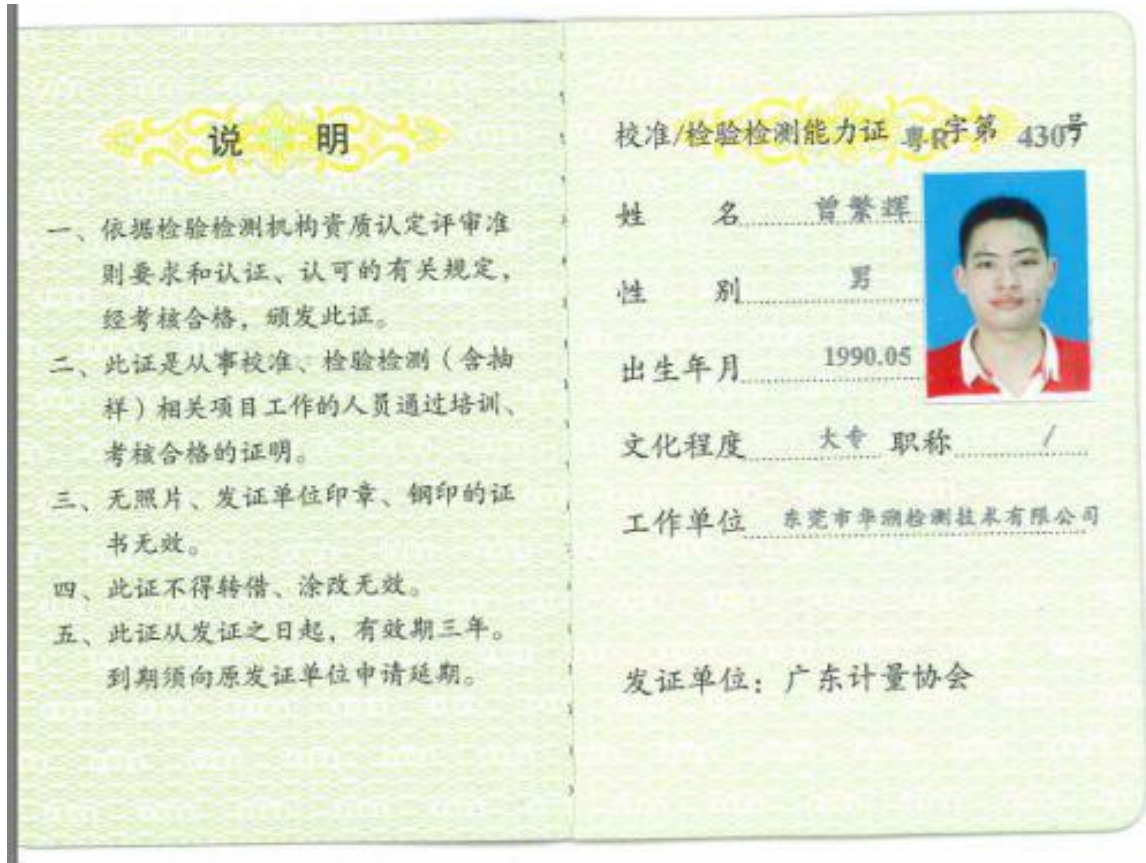 说 明
一、依据检验检测机构资质认定评审准
则要求和认证、认可的有关规定，
经考核合格，颁发此证。
二、此证是从事校准、检验检测（含抽
样）相关项目工作的人员通过培训、
考核合格的证明。
三、无照片、发证单位印章、钢印的证
书无效。
四、此证不得转借、涂改无效。
五、此证从发证之日起，有效期三年。
到期须向原发证单位申请延期。
校准/检验检测能力证 粤R字第 4309号
姓 名 曾繁辉
性 别 男
出生年月 1990.05
文化程度 大专 职称 /
工作单位 东莞市华溯检测技术有限公司
发证单位：广东计量协会